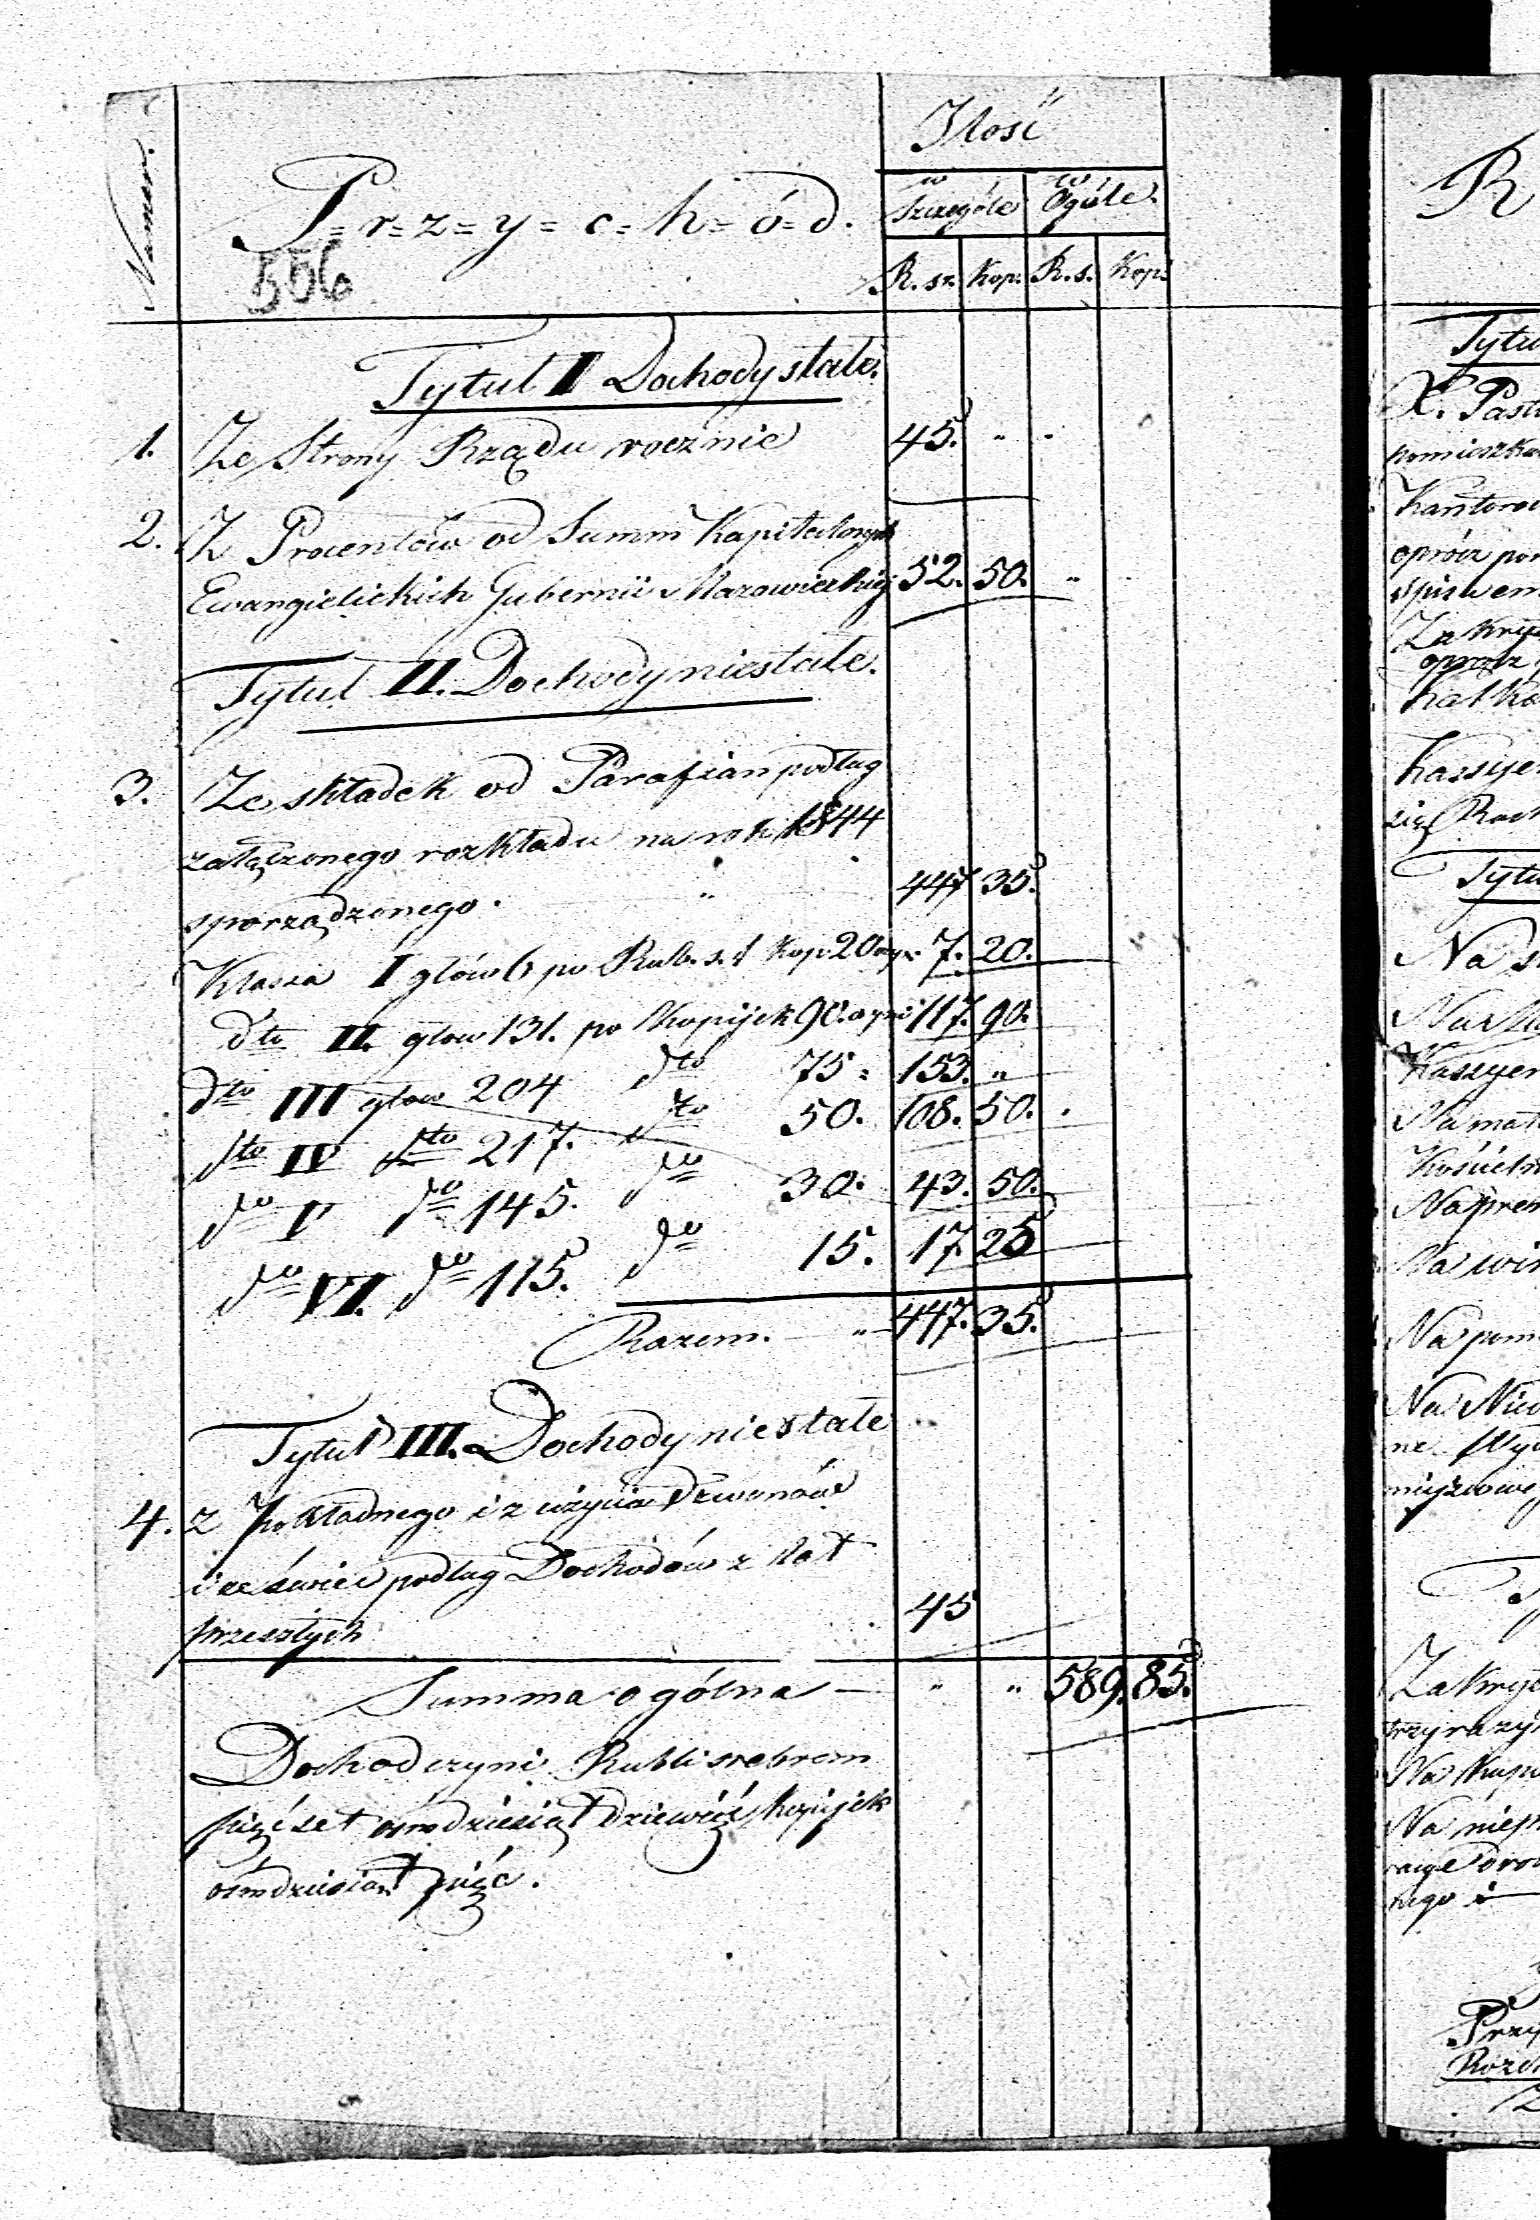 Numer.
P=r=z=y=c=h=ó=d.
556
Ilość
w Szczególe
w Ogóle.
R. sr. Kop. R. s. Kop.
Tytuł I Dochody stałe.
1. Ze Strony Rządu rocznie 45. " "
2. Z Procentów od Summ Kapitałowych
Ewangielickich Gubernii Mazowieckiej 52. 50. "
Tytuł II. Dochody niestałe.
3. Ze składek od Parafian podług
załączonego rozkładu na rok 1844
sporządzonego. " 447 35.
Klassa I głów 6 po Rub. s. 1 Kop 20 czyni 7. 20.
dto II. głow 131. po Kopijek 90. czyni 117. 90.
dto III głow 204 dto 75 = 153. "
dto IV dto 217. dto 50. 108. 50.
do V do 145. do 30. 43. 50.
do VI. do 115. do 15. 17. 25
Razem. " 447. 35.
Tytuł III. Dochody niestałe
4. z Pokładnego i z użycia Dzwonów
i ze świec podług Dochodów z lat
przeszłych 45
Summa ogólna — " " 589. 85.
Dochod czyni Rubli srebrem
pięćset ośmdziesiąt dziewięć kopijek
ośmdziesiąt pięć.
R
Tytu
X. Past
pomieszka
Kantoro
oprócz po
Kassyer
Tytu
Na
Kassyer
Na mat
Kościeln
Na
Na win
Na pom
Na
Na Kup
Przy
Rozch